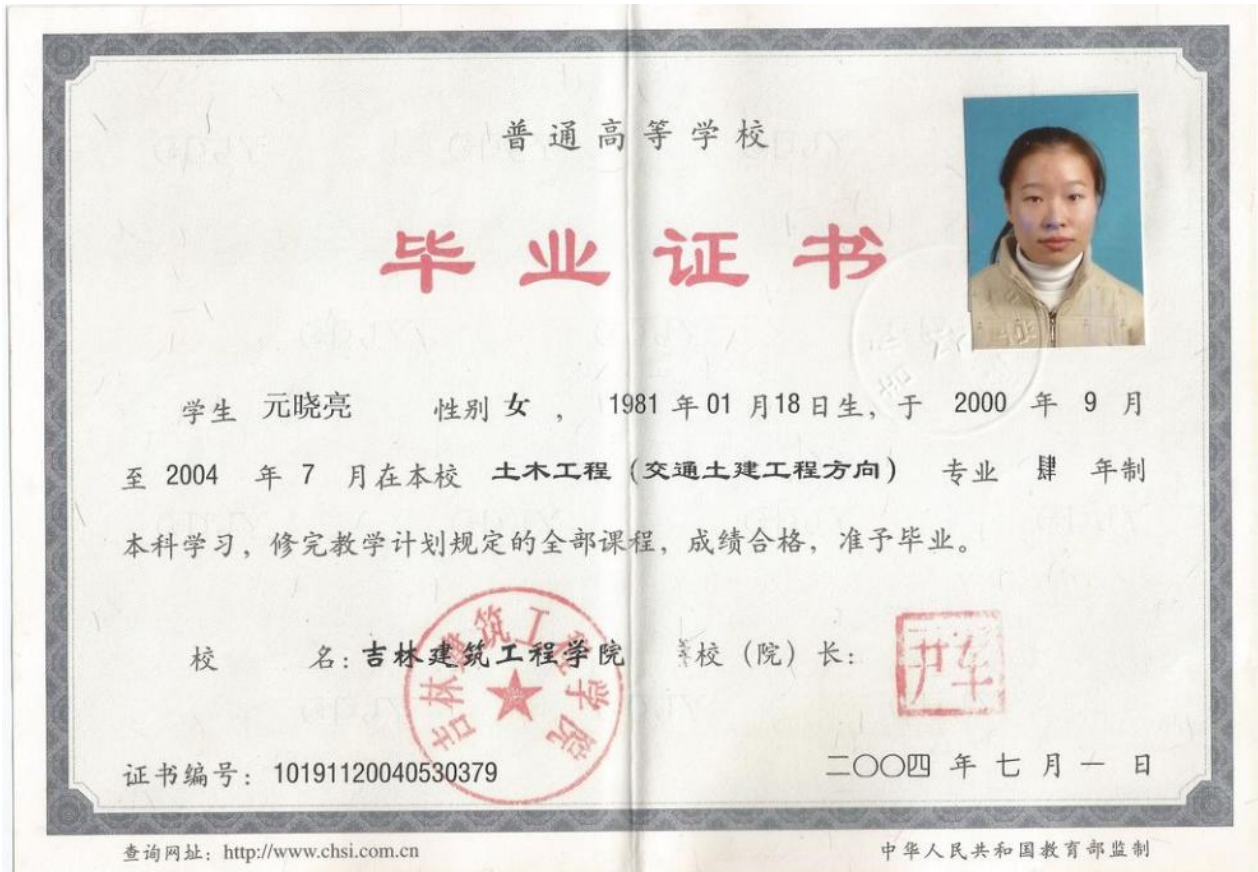 普通高等学校
毕业证书
学生 元晓亮 性别 女 , 1981 年 01 月 18 日生, 于 2000 年 9 月
至 2004 年 7 月在本校 土木工程 (交通土建工程方向) 专业 肆 年制
本科学习, 修完教学计划规定的全部课程, 成绩合格, 准予毕业。
校 名: 吉林建筑工程学院 校 (院) 长:
吉林建筑工程学院
证书编号: 10191120040530379
二〇〇四 年 七 月 一 日
查询网址: http://www.chsi.com.cn
中华人民共和国教育部监制